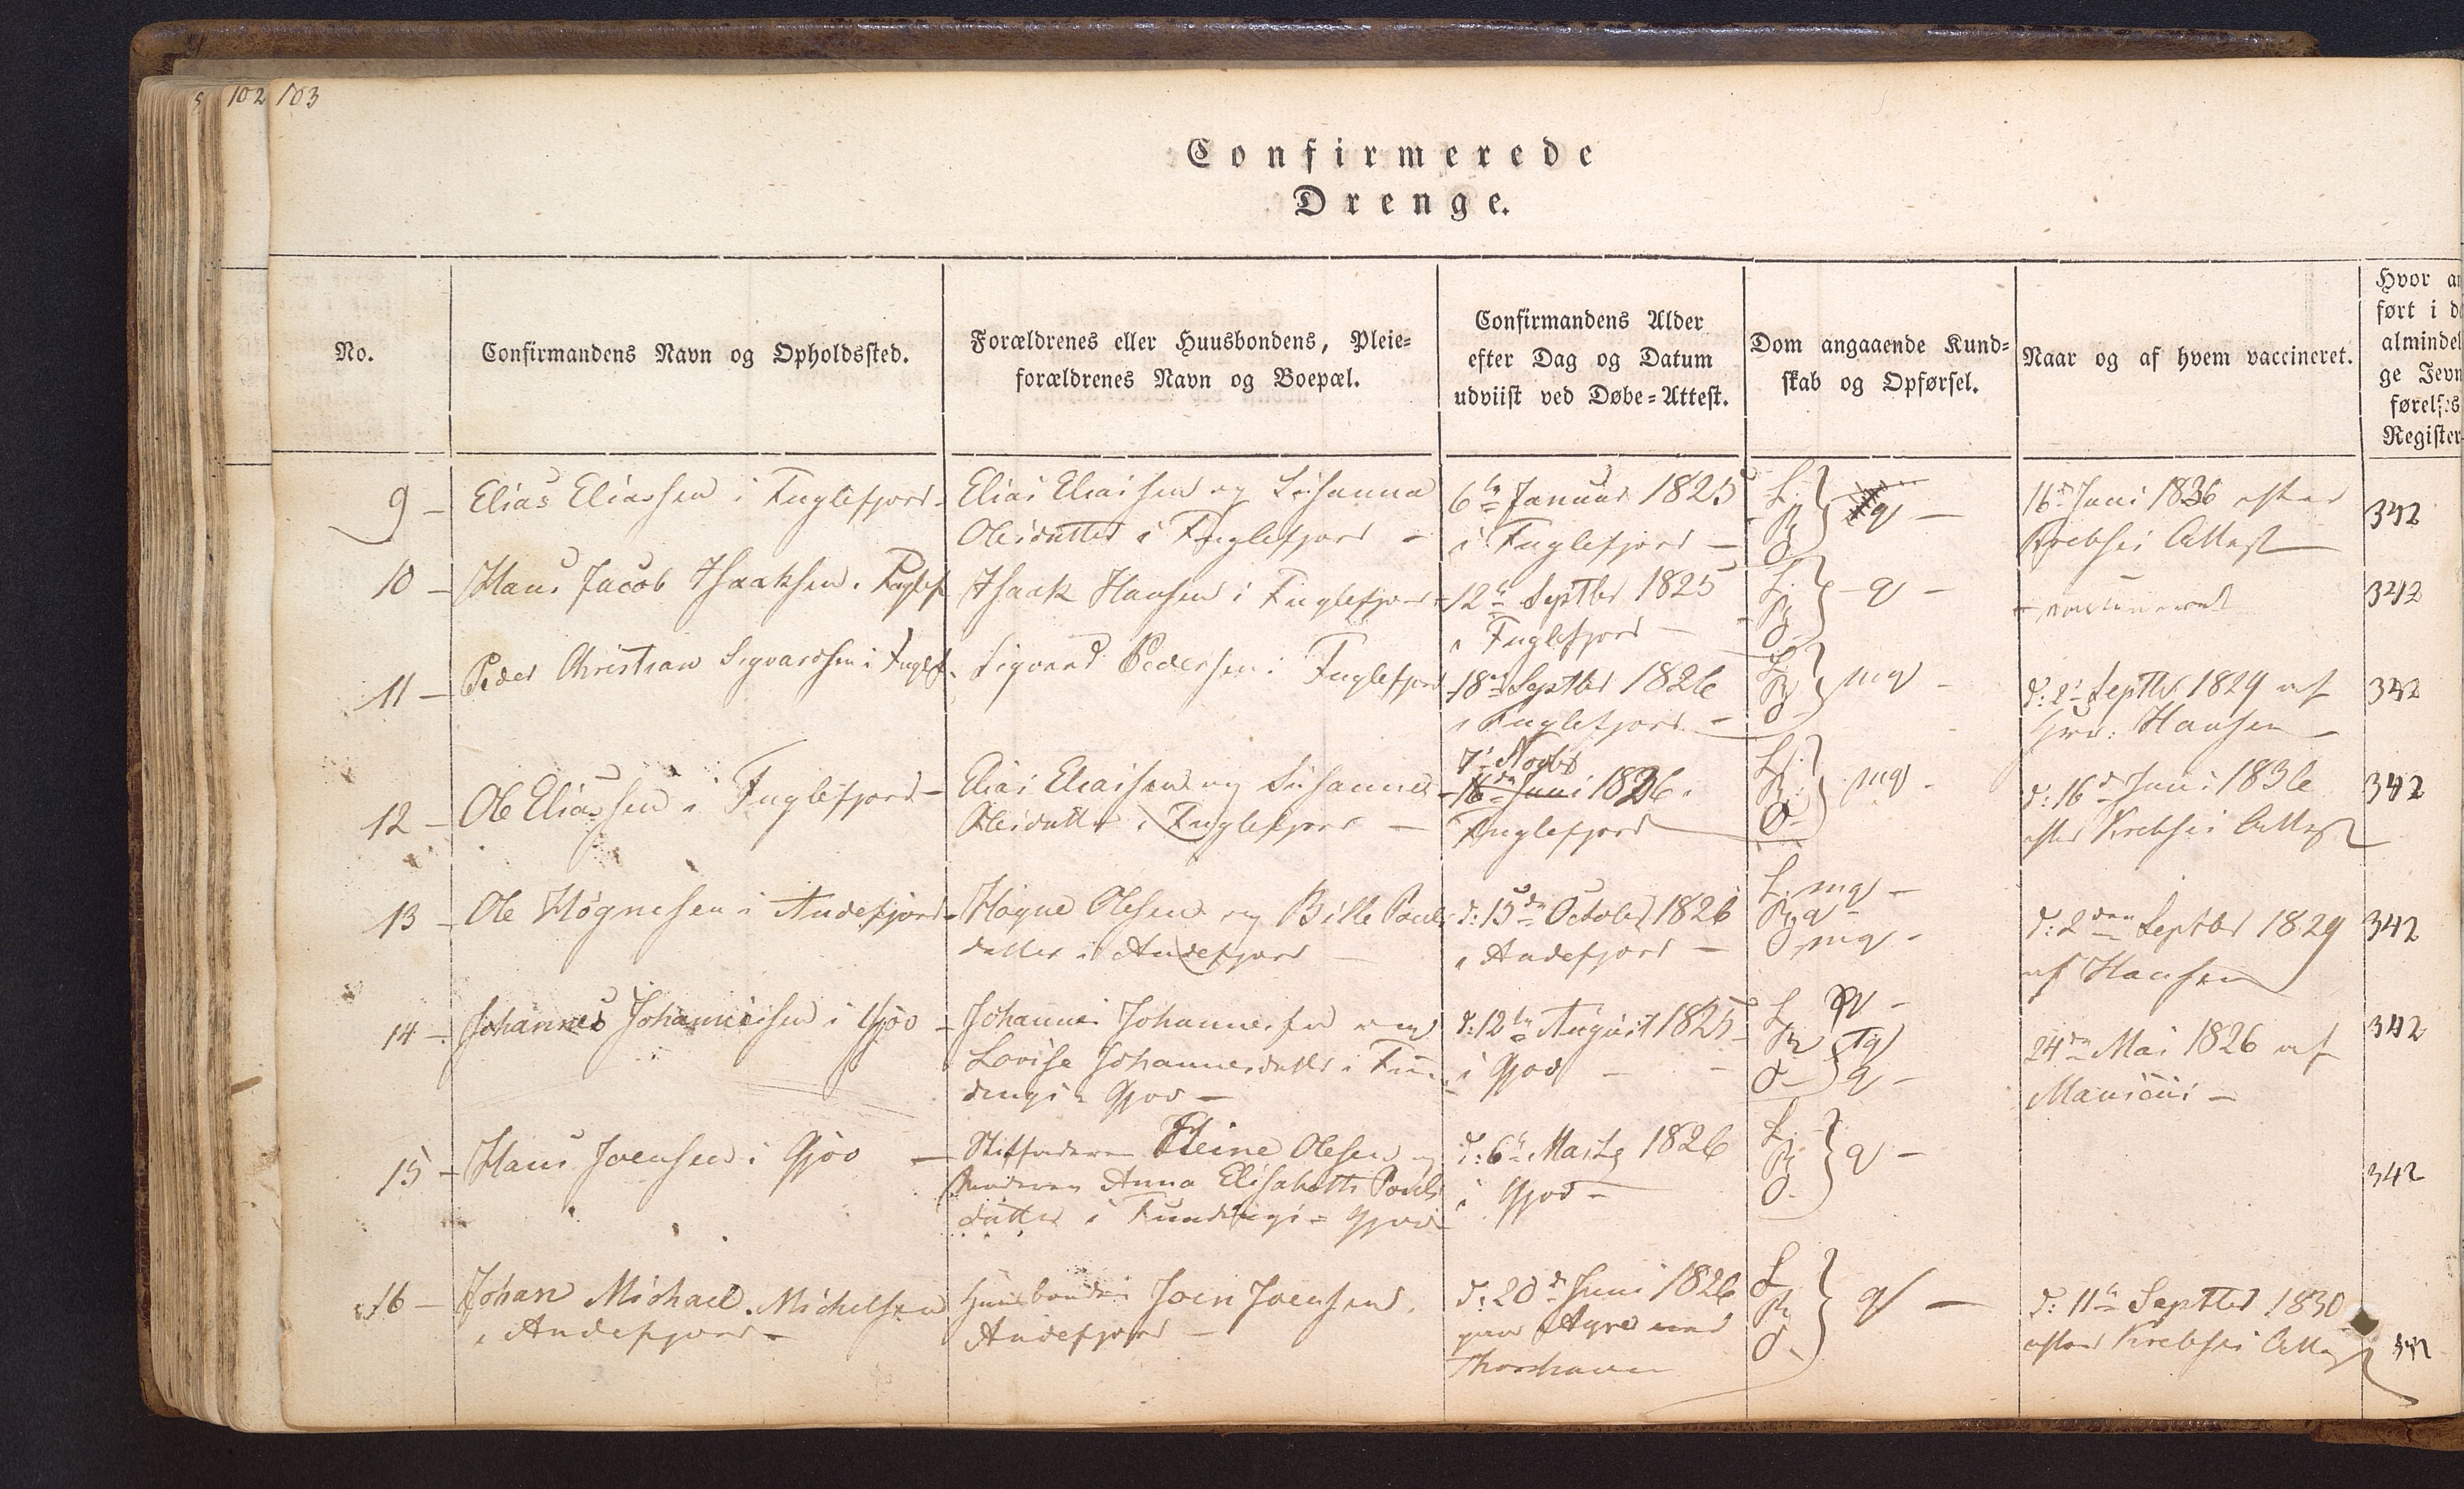 102 103
Confirmerede
Drenge.
No.
Confirmandens Navn og Opholdssted.
Forældrenes eller Huusbondens, Pleie=
forældrenes Navn og Boepæl.
Confirmandens Alder
efter Dag og Datum
udviist ved Døbe=Attest.
Dom angaaende Kund=
skab og Opførsel.
Naar og af hvem vaccineret.
Hvor
ført i
almindel
ge
førelses
Register
9 - Elias Eliassen i Fuglefjord -
Elias Eliassen og Susanna
Olesdatter i Fuglefjord -
6te Januar 1825
i Fuglefjord -
L.
R
O
q -
16d Juni 1836 efter
Krebses Attest
342
10 - Hans Jacob Isaaksen i Fuglef
Isaak Hansen i Fuglefjord
12te Septbr 1825
i Fuglefjord -
L.
R
O
- q -
- vaccineret
342
11 - Peder Christian Sigvardsen i Fuglef.
Sigvard Pedersen i Fuglefjord
18de Septbr 1826
i Fuglefjord -
L.
R
O
mq -
d: 2 Septbr 1829 af
Hansen -
342
12 - Ole Eliassen i Fuglefjord -
Elias Eliassen og Susanna
Olesdatter i Fuglefjord -
7 Novbr
16de Juni 1826 i
Fuglefjord
L.
R.
O
mq -
d: 16d Juni 1836
efter Krebses Attest
342
13 - Ole Høgnesen i Andefjord -
Høgne Olesen og Bille Pouls
datter i Andefjord -
d: 15de October 1826
i Andefjord -
L. mq -
R q -
O mq -
d: 2den Septbr 1829
af Hansen
342
14 - Johannes Johannesen i Gjov -
Johannes Johannesen og
Lovise Johannesdatter i Fun
dings Gjov -
d: 12te August 1825
i Gjov -
L q -
R Tq
O - q -
24de Mai 1826 af
342
15 - Hans Joensen i Gjov -
Stiffaderen Heine Olesen og
Moderen Anna Elisabeth Pouls
datter i Fundings = Gjov -
d: 6te Marts 1826
i Gjov -
L.
R
O.
q -
342
16 - Johan Michael Michelsen
i Andefjord -
Huusbonden Joen Joensen i
Andefjord -
d: 20d Juni 1826
paa ved
Thorshavn
L
R
O.
q -
d: 11te Septbr 1830
efter Krebses Attest
342